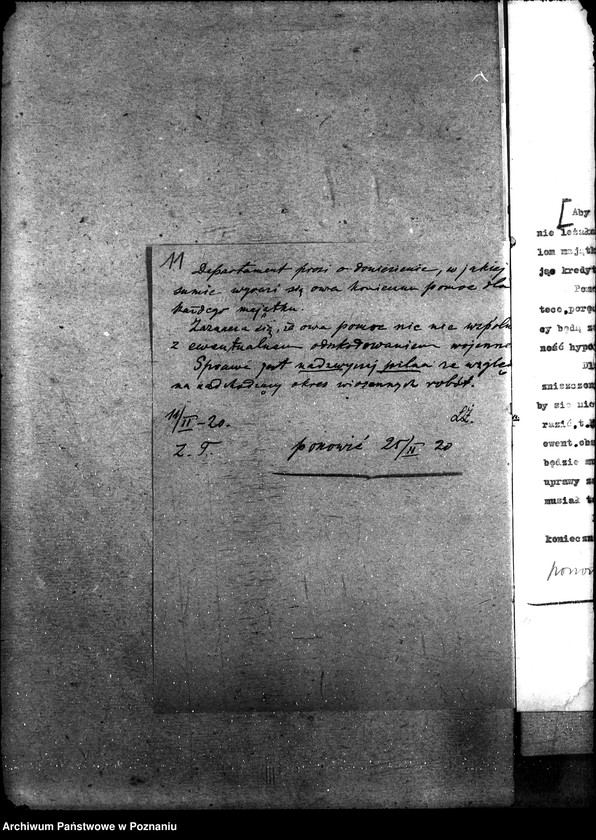 11
Departament prosi o doniesienie, w jakiej
sumie wyrazi się owa konieczna pomoc dla
każdego majątku.
Zaznacza się, iż owa pomoc nic nie wspóln
z ewentualnem odszkodowaniem wojenne
Sprawa jest nadzwyczaj pilna ze wzglę
na nadchodzący okres wiosennych robót.
11/II-20.
Z. T.
ponowić 25/II 20
[Aby
nie
łom mająt
jąc kredyt
Pomo
tece,porę
cy będą z
ność hypo
zniszczon
by się nie
razić,t.
ewent.obs
będzie
uprawy
musiał
konieczn
Archiwum Państwowe w Poznaniu